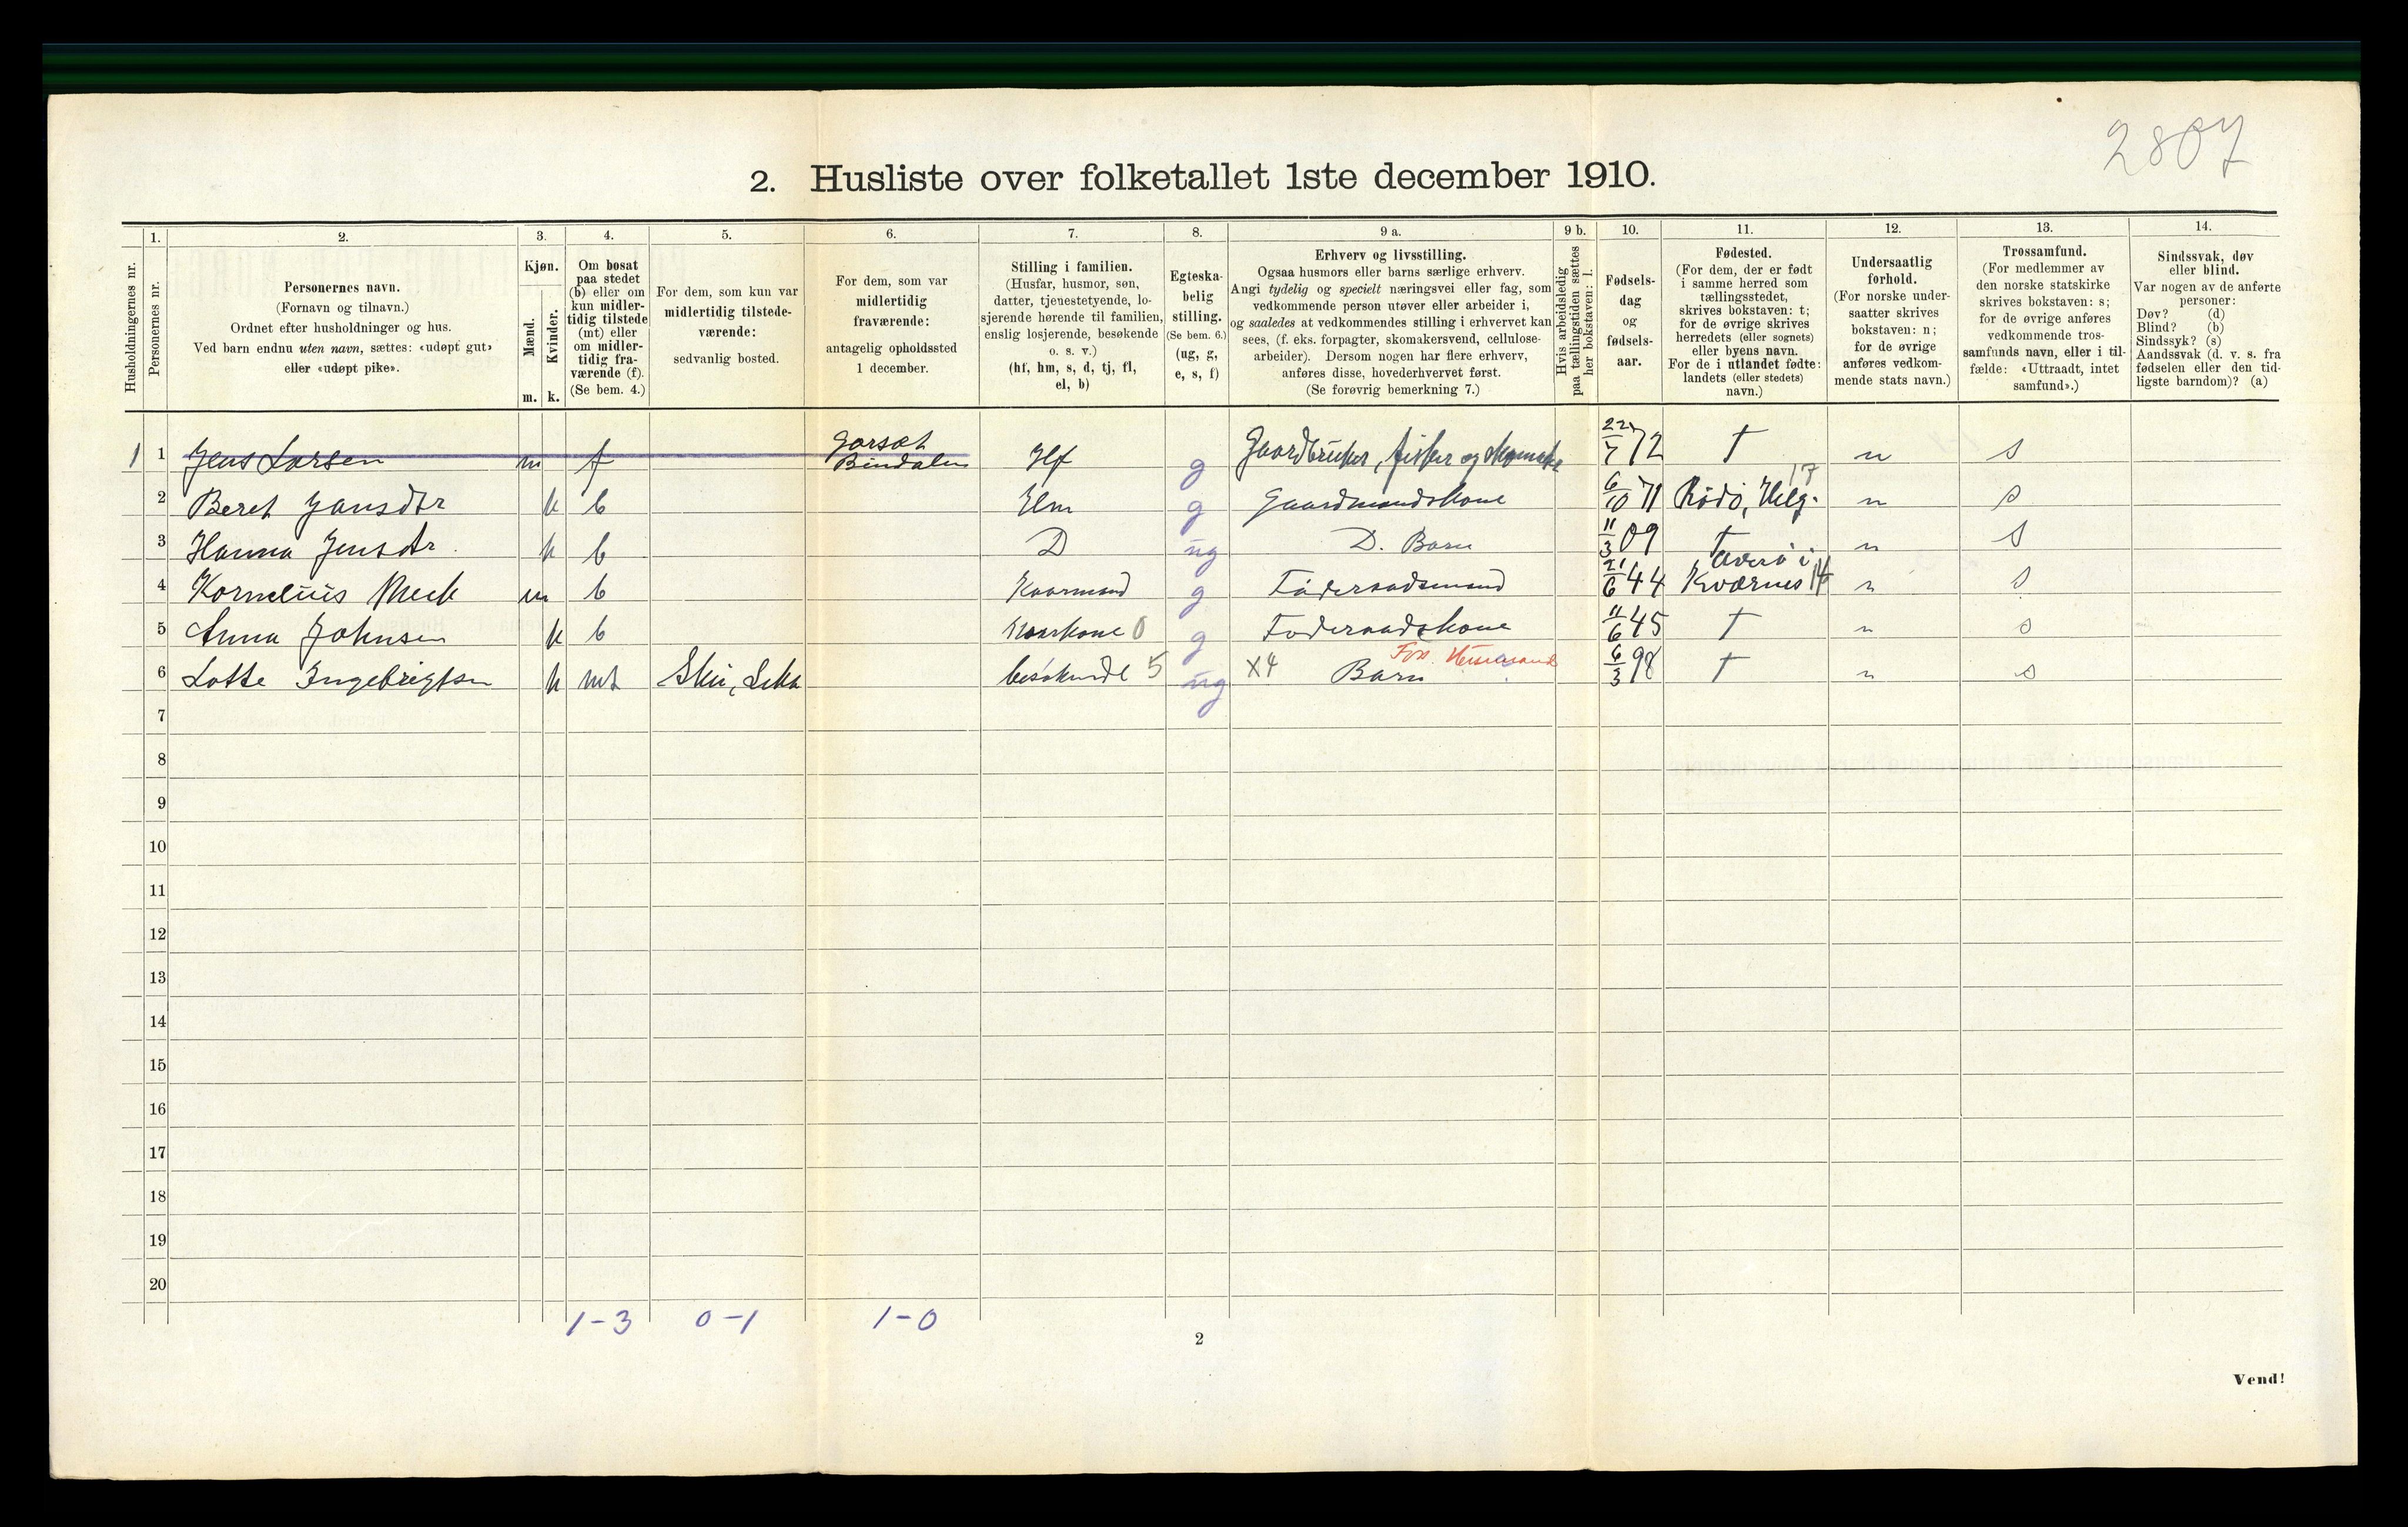 2807
2. Husliste over folketallet 1ste december 1910.
Husholdningernes nr.
1.
Personernes nr.
2.
Personernes navn.
(Fornavn og tilnavn.)
Ordnet efter husholdninger og hus.
Ved barn endnu uten navn, sættes: «udøpt gut»
eller «udøpt pike».
3.
Kjøn.
Mænd.
Kvinder.
m. k.
4.
Om bosat
paa stedet
(b) eller om
kun midler-
tidig tilstede
(mt) eller
om midler-
tidig fra-
værende (f).
(Se bem. 4.)
5.
For dem, som kun var
midlertidig tilstede-
værende:
sedvanlig bosted.
6.
For dem, som var
midlertidig
fraværende:
antagelig opholdssted
1 december.
7.
Stilling i familien.
(Husfar, husmor, søn,
datter, tjenestetyende, lo-
sjerende hørende til familien,
enslig losjerende, besøkende
o. s. v.)
(hf, hm, s, d, tj, fl,
el, b)
8.
Egteska-
belig
stilling.
(Se bem. 6.)
(ug, g,
e, s, f)
9 a.
Erhverv og livsstilling.
Ogsaa husmors eller barns særlige erhverv.
Angi tydelig og specielt næringsvei eller fag, som
vedkommende person utøver eller arbeider i,
og saaledes at vedkommendes stilling i erhvervet kan
sees, (f. eks. forpagter, skomakersvend, cellulose-
arbeider). Dersom nogen har flere erhverv,
anføres disse, hovederhvervet først.
(Se forøvrig bemerkning 7.)
9 b.
Hvis arbeidsledig
paa tællingstiden sættes
her bokstaven: l.
10.
Fødsels-
dag
og
fødsels-
aar.
11.
Fødested.
(For dem, der er født
i samme herred som
tællingsstedet,
skrives bokstaven: t;
for de øvrige skrives
herredets (eller sognets)
eller byens navn.
For de i utlandet fødte:
landets (eller stedets)
navn.)
12.
Undersaatlig
forhold.
(For norske under-
saatter skrives
bokstaven: n;
for de øvrige
anføres vedkom-
mende stats navn.)
13.
Trossamfund.
(For medlemmer av
den norske statskirke
skrives bokstaven: s;
for de øvrige anføres
vedkommende tros-
samfunds navn, eller i til-
fælde: «Uttraadt, intet
samfund».)
14.
Sindssvak, døv
eller blind.
Var nogen av de anførte
personer:
Døv? (d)
Blind? (b)
Sindssyk? (s)
Aandssvak (d. v. s. fra
fødselen eller den tid-
ligste barndom)? (a)
1 1 Jens Larsen m f Bindalen Hf g Gaardbruker, fisker og 22/7 72 t n s
2 Beret Jansdtr k b Hm g Gaardmandskone 6/10 71 Rödö, Helg. 17 n s
3 Hanna Jensdtr. k b D ug D. Barn 11/3 09 t n s
4 Kornelius m b Kaarmand g Föderaadsmand 21/6 44 Averö i Kværnes 14 n s
5 Anna Johnsen k b Kaarkone 0 g Foderaadskone 11/6 45 t n s
6 Lotte Ingebrigtsn k mt Skei, Leka besökende 5 ug X4 Barn 6/3 98 t n s
7
8
9
10
11
12
13
14
15
16
17
18
19
20
1-3 0-1 1-0
2
Vend!